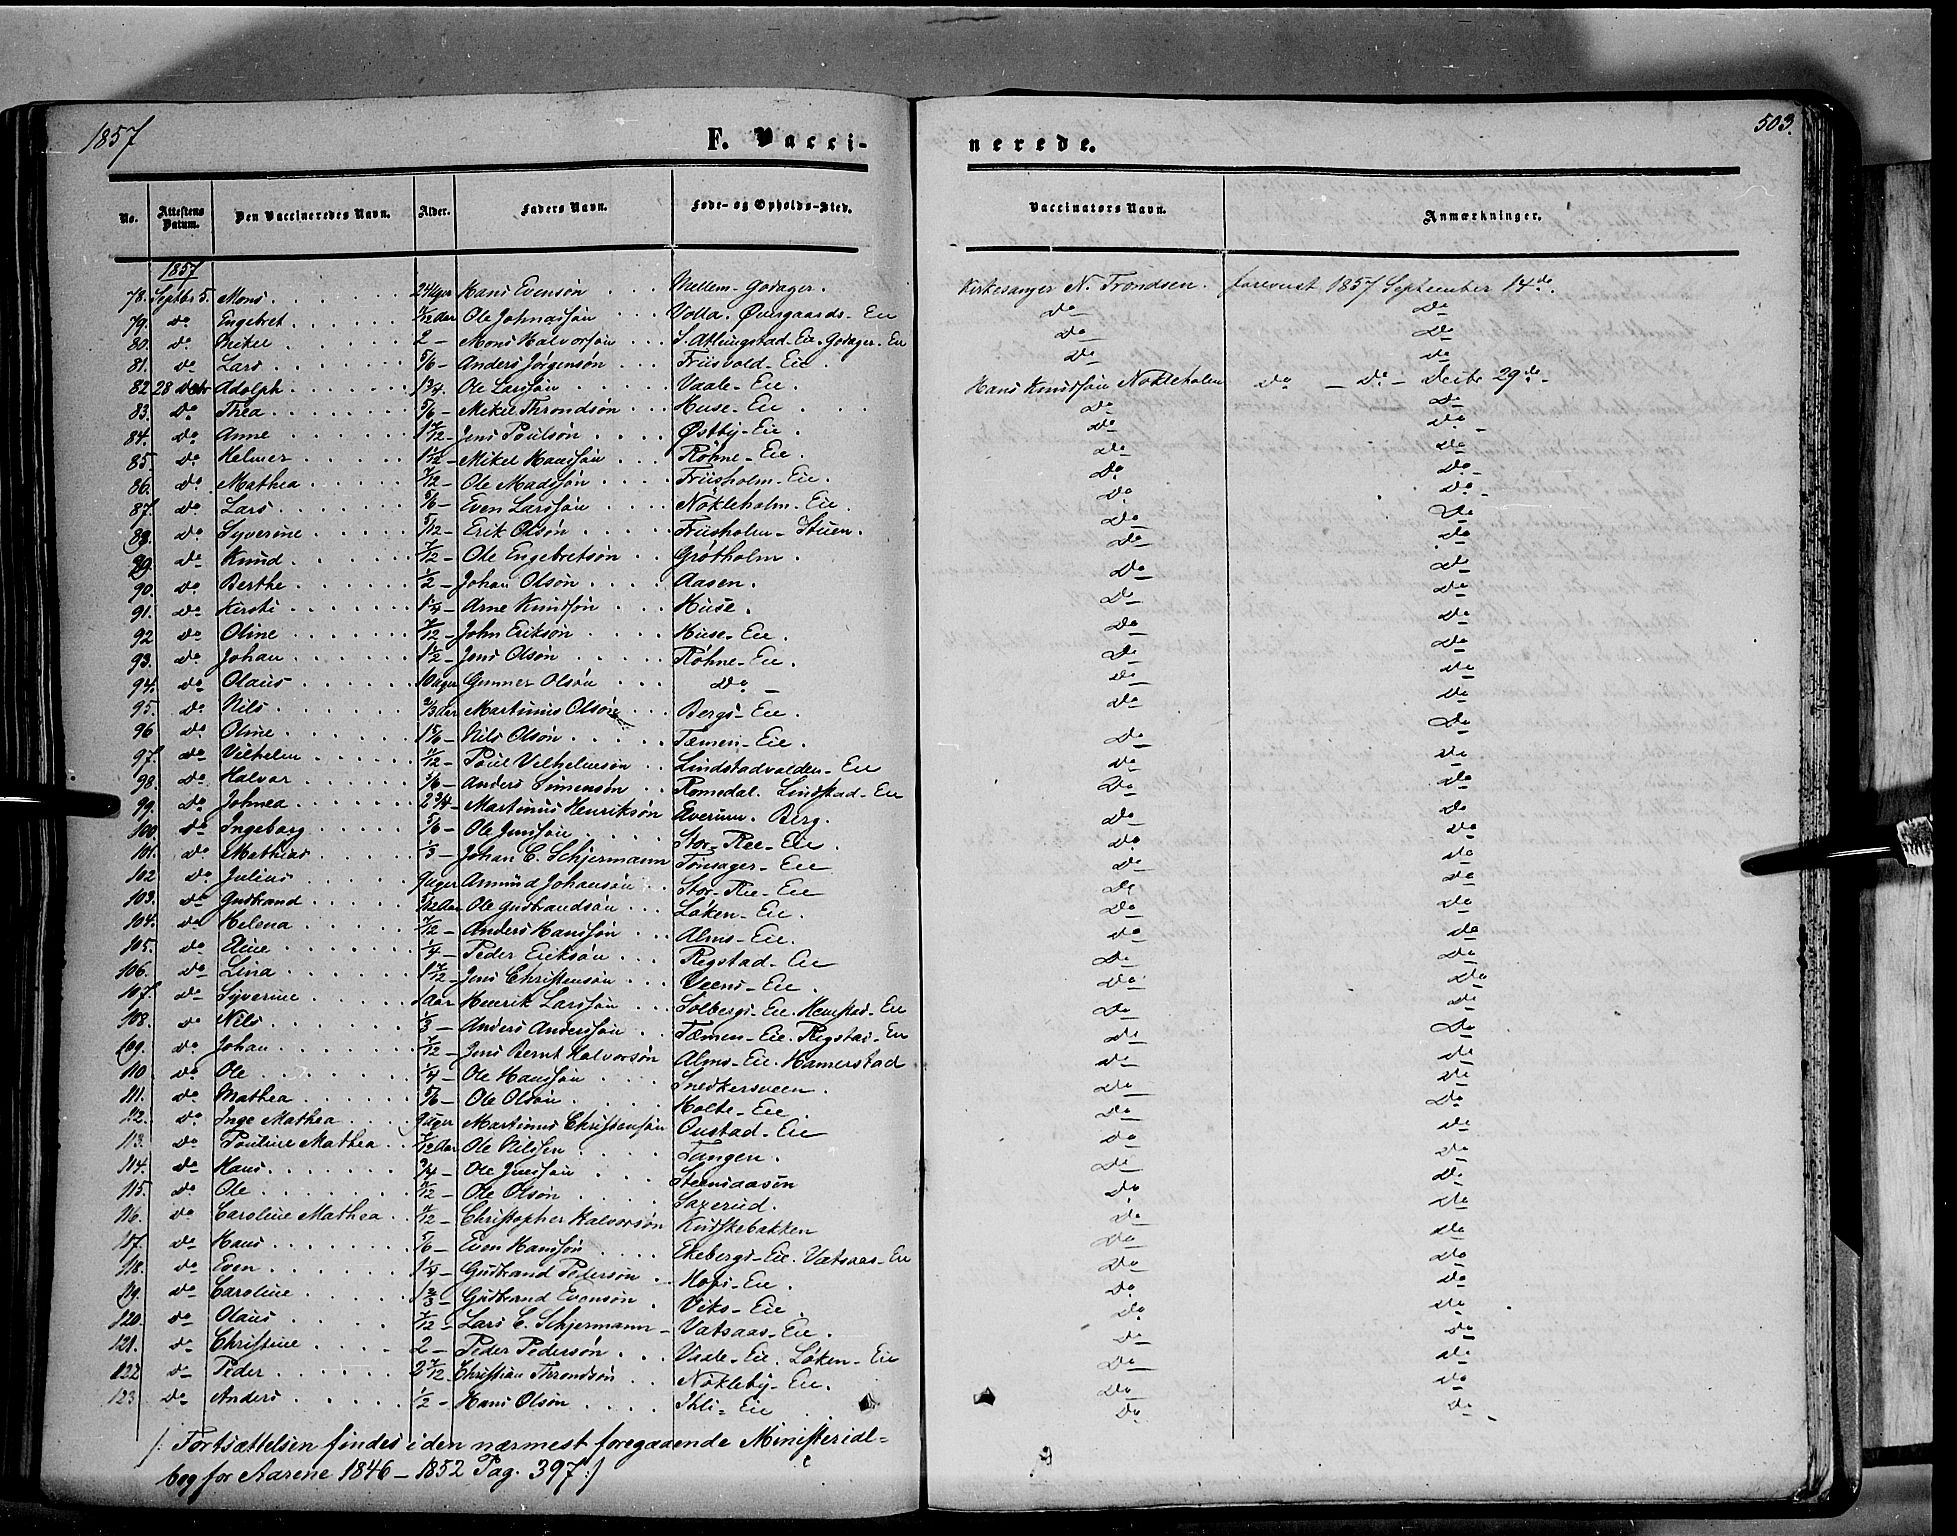 1857
503.
F. Vacci-
nerede.
No. Attestens Datum. Den Vaccineredes Navn. Alder. Faders Navn. Føde- og Opholds-Sted. Vaccinators Navn. Anmærkninger.
1857
78. Septbr 5. Mons 24 Uger Hans Evensøn Mellem-Godager. Kirkesanger N. Trondsen. forevist 1857 September 14de.
79. do Engebret Ole Johnassøn Volla. Øvergaards-Eie do do
80. do Mikel 2 - Mons Halvorsøn S. Atlungstad-Eie. Godager-Eie do do
81. do Lars 5/6 - Anders Jørgensøn Friisvold-Eie. do do
82 28 Octbr Adolph 1 3/4 - Ole Larssøn Vaale-Eie. Hans Knudsøn Nokleholm do - do - Octbr 29de -
83. do Thea 5/6 - Mikel Throndsøn Huse-Eie do do
84. do Anne 1 7/12 - Jens Poulsøn Østby-Eie. do do
85. do Helmer 1 1/2 - Mikel Hanssøn Røhne-Eie. do do
86. do Mathea 7/12 - Ole Madssøn Friisholm-Eie. do do
87. do Lars 5/6 - Even Larssøn Nokleholm-Eie. do do
88. do Syverine 5/12 - Erik Olsøn Friisholm-Stuen. do do
89. do Knud 7/12 - Ole Engebretsøn Grøtholm. do do
90. do Berthe 1/2 - Johan Olsøn Aasen. do do
91. do Kirsti 1 1/4 - Arne Knudsøn Huse. do do
92 do Oline 7/12 - John Eriksøn Huse-Eie. do do
93. do Johan 1 1/2 - Jens Olsøn Røhne-Eie. do do
94. do Olaus 10 Uger Gunner Olsøn do - do do
95. do Nils 2/3 Aar Martinus Olsøn Bergs-Eie. do do
96 do Oline 1 5/6 - Nils Olsøn Tæmen-Eie. do do
97. do Vilhelm 7/12 - Poul Vilhelmsøn Lindstadvolden-Eie do do
98. do Halvor 5/6 - Anders Simensøn Romedal. Lindstad-Eie do do
99. do Johnea 2 3/4 - Martinus Henriksøn Elverum. Berg. do do
100. do Ingeborg 5/6 - Ole Jenssøn Stor-Ree-Eie. do do
101. do Mathias 1/3 - Johan C. Schjermann Tonsager-Eie do do
102 do Julius 9 Uger Amund Johansøn Stor-Ree-Eie do do
103. do Gudbrand Ole Gudbrandsøn Løken-Eie. do do
104. do Helena 7/12 - Anders Hanssøn Alms-Eie. do do
105. do Eline 1/4 - Peder Eriksøn Rigstad-Eie do do
106. do Lina 1 7/12 - Jens Christensøn Veens-Eie. do do
107. do Syverine 1 Aar Henrik Larssøn Solbergs-Eie. Hemstad-Eie do do
108. do Nils 1/3 - Anders Anderssøn Tæmen-Eie. Rigstad-Eie do do
109. do Johan 7/12 - Jens Bernt Halvorsøn Alms-Eie. Hamerstad do do
110 do Ole 1/4 - Ole Hanssøn Snedkersveen. do do
111. do Mathea 5/6 - Ole Olsøn Holte-Eie. do do
112. do Inge Mathea 9 Uger Martinus Christensøn Oustad-Eie do do
113. do Pouline Mathea 7/12 Aar Ole Nilsen Tangen. do do
114. do Hans 3/4 - Ole Jenssøn Steensaasen do do
115. do Ole 7/12 - Ole Olsøn Saxerud. do do
116. do Caroline Mathea 7/12 - Christopher Halvorsøn Kuskebakken do do
117. do Hans 5/6 - Even Hanssøn Ekebergs-Eie. Vatsaas-Eie do do
118. do Even 1 1/4 - Gudbrand Pedersøn Hofs-Eie. do do
119. do Caroline 1 2/3 - Gudbrand Evensøn Viks-Eie. do do
120. do Olaus 7/12 - Lars C. Schjermann Vatsaas-Eie. do do
121. do Christine 2 - Peder Pedersøn Vaale-Eie. Løken-Eie do do
122 do Peder 3 7/12 - Christian Throndsøn Nokleby-Eie. do do
123 do Anders 1/2 - Hans Olsøn Ihli-Eie do do
/: Fortsættelsen findes i den nærmest foregaaende Ministerial-
bog for Aarene 1846 - 1852 Pag. 397 :/